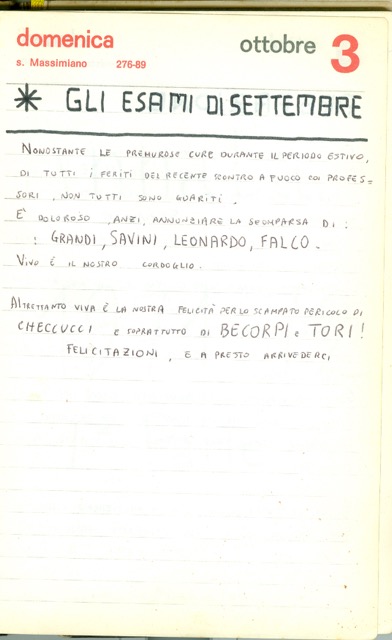 domenica ottobre 3
s. Massimiano 276-89
* GLI ESAMI DI SETTEMBRE
NONOSTANTE LE PREMUROSE CURE DURANTE IL PERIODO ESTIVO,
DI TUTTI I FERITI DEL RECENTE SCONTRO A FUOCO COI PROFES=
SORI, NON TUTTI SONO GUARITI.
E' DOLOROSO, ANZI, ANNUNZIARE LA SCOMPARSA DI:
: GRANDI, SAVINI, LEONARDO, FALCO.
VIVO È IL NOSTRO CORDOGLIO.
ALTRETTANTO VIVA È LA NOSTRA FELICITÀ PER LO SCAMPATO PERICOLO DI
CHECCUCCI E SOPRATTUTTO DI BECORPI E TORI!
FELICITAZIONI, E A PRESTO ARRIVEDERCI